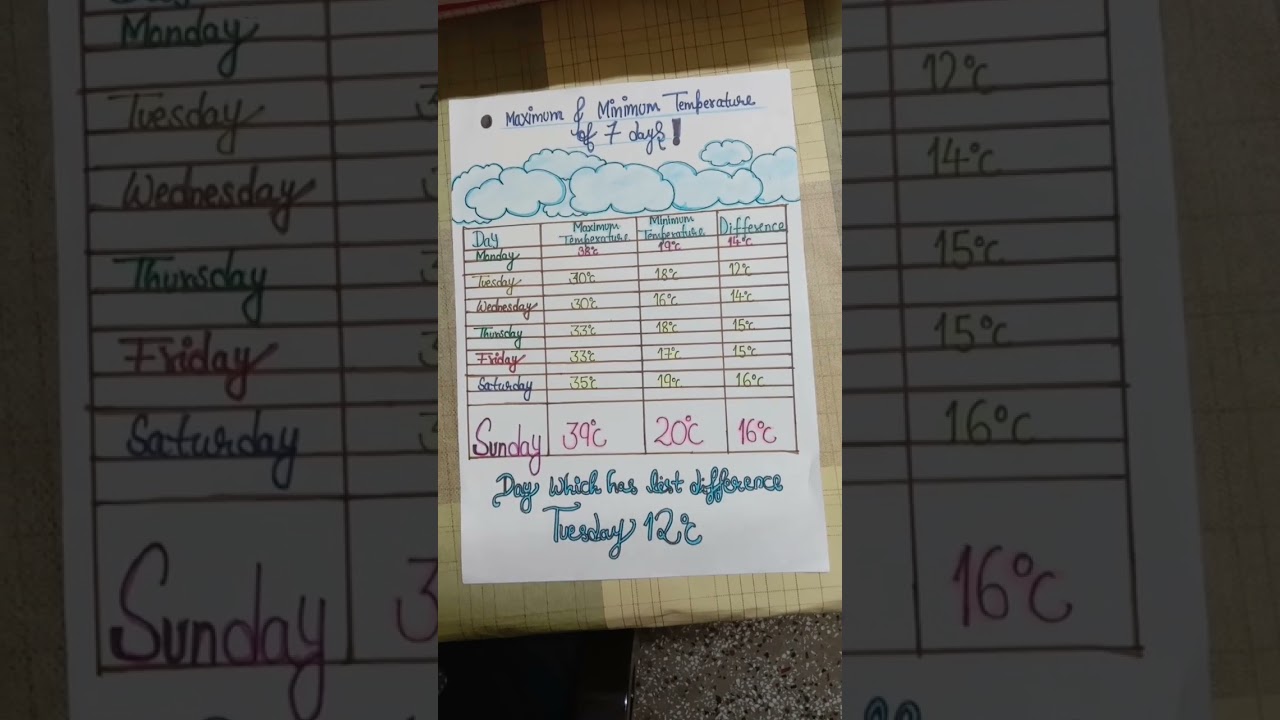 Maximum & Minimum Temperature
of 7 days!
Day Maximum Temperature Minimum Temperature Difference
Monday 38°C 19°C 14°C
Tuesday 30°C 18°C 12°C
Wednesday 30°C 16°C 14°C
Thursday 33°C 18°C 15°C
Friday 33°C 17°C 15°C
Saturday 35°C 19°C 16°C
Sunday 39°C 20°C 16°C
Day which has list difference
Tuesday 12°C